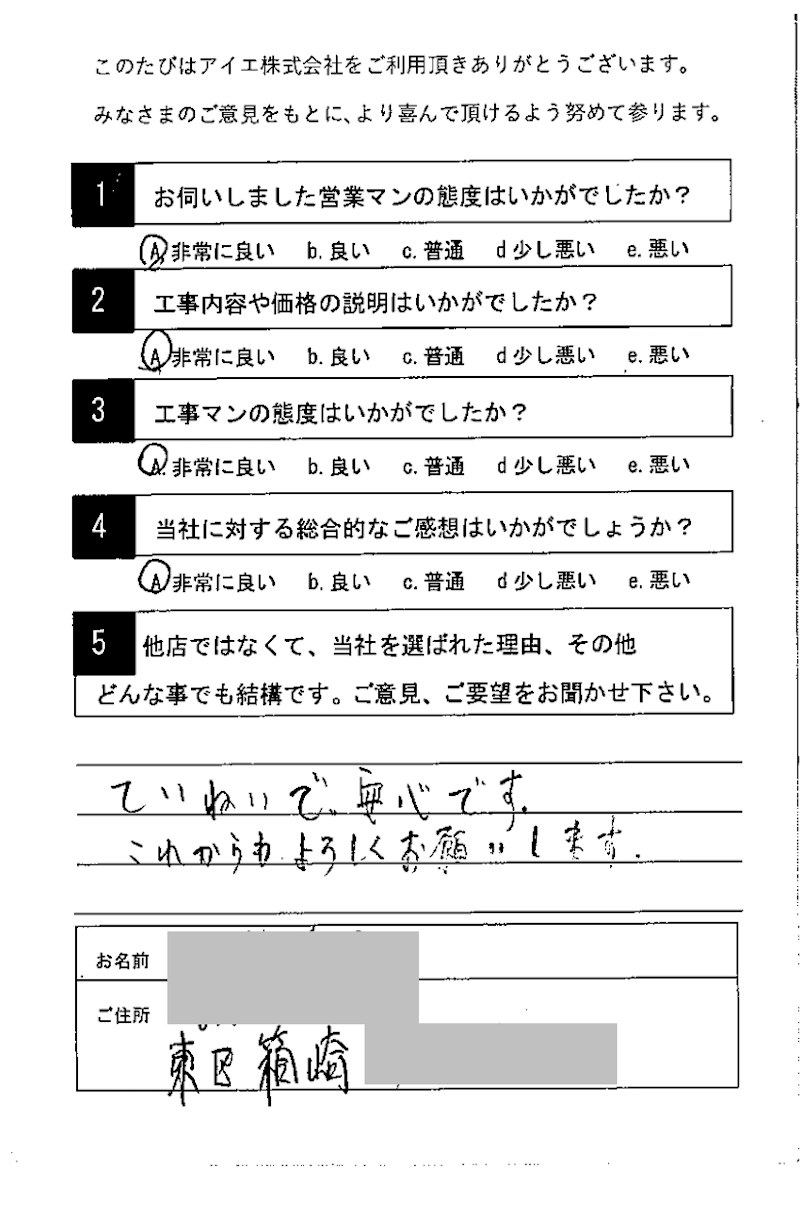 このたびはアイエ株式会社をご利用頂きありがとうございます。
みなさまのご意見をもとに、より喜んで頂けるよう努めて参ります。
1 お伺いしました営業マンの態度はいかがでしたか？
A 非常に良い b. 良い c. 普通 d 少し悪い e. 悪い
2 工事内容や価格の説明はいかがでしたか？
A 非常に良い b. 良い c. 普通 d 少し悪い e. 悪い
3 工事マンの態度はいかがでしたか？
A. 非常に良い b. 良い c. 普通 d 少し悪い e. 悪い
4 当社に対する総合的なご感想はいかがでしょうか？
A 非常に良い b. 良い c. 普通 d 少し悪い e. 悪い
5 他店ではなくて、当社を選ばれた理由、その他
どんな事でも結構です。ご意見、ご要望をお聞かせ下さい。
ていねいで、安心です.
これからも よろしくお願いします.
お名前
ご住所
東区箱崎